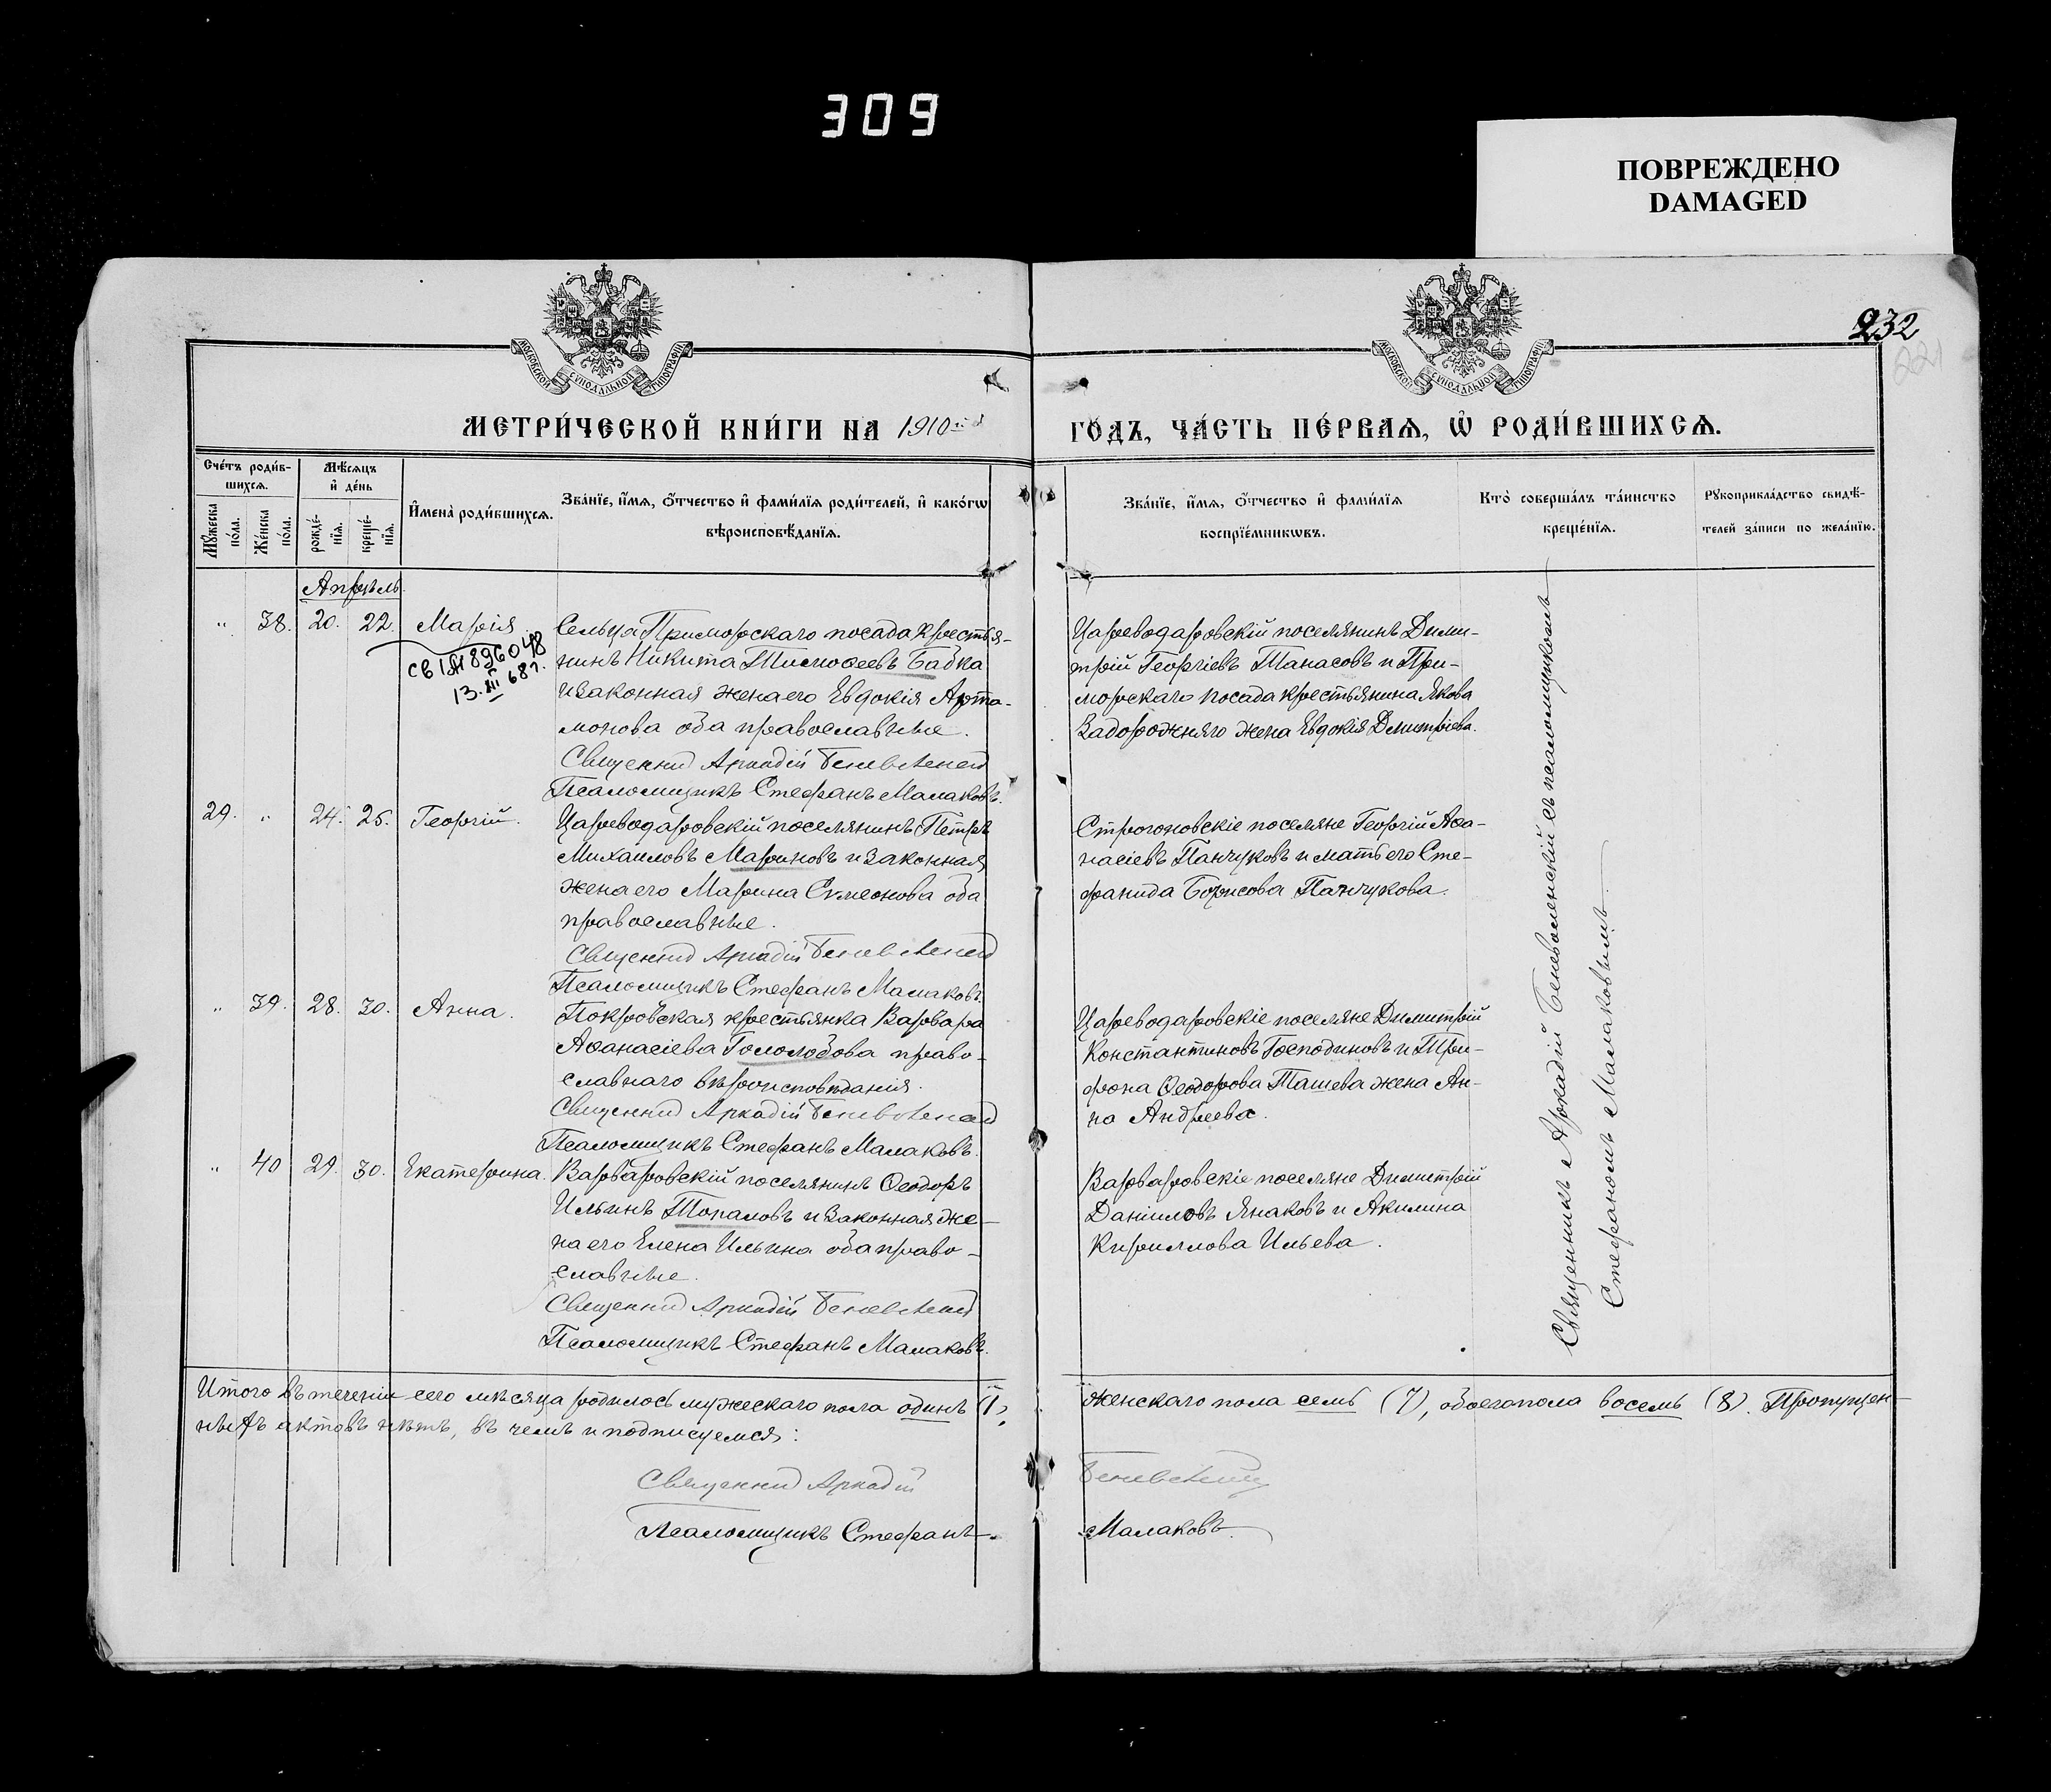 309
ПОВРЕЖДЕНО
DAMAGED
232
221
МОСКОВСКОЙ СѴНОДАЛЬНОЙ ТИПОГРАФІИ
МОСКОВСКОЙ СѴНОДАЛЬНОЙ ТИПОГРАФІИ
МЕТРИ́ЧЕСКОЙ КНИ́ГИ НА 1910й
ГО́ДЪ, ЧА́СТЬ ПЕ́РВАѦ, Ѡ҆ РОДИ́ВШИХСѦ.
Сче́тъ роди́в-
шихсѧ.
Мѣ́сѧцъ
и҆ де́нь
Мꙋ́жеска по́ла.
Же́нска по́ла.
рожде́-
нїѧ.
креще́-
нїѧ.
И҆мена̀ роди́вшихсѧ.
Зва́нїе, и҆́мѧ, ѻ҆́тчество и҆ фами́лїѧ роди́телей, и҆ како́гѡ
вѣроисповѣ́данїѧ.
Зва́нїе, и҆́мѧ, ѻ҆́тчество и҆ фами́лїѧ
воспрїе́мникѡвъ.
Кто̀ соверша́лъ та́инство
креще́нїѧ.
Рꙋкоприкла́дство свидѣ́-
телей за́писи по жела́нїю.
Апрѣль.
" 38. 20. 22. Марія
св ІЯІ 896048
13.III 687.
Сельца Приморскаго посада крестья-
нинъ Никита Тимофеевъ Бабка
и законная жена его Евдокія Арта-
монова оба православные.
Священник Аркадій Беневоленский
Псаломщикъ Стефанъ Малаковъ.
Цареводаровскій поселянинъ Дими-
трій Георгіевъ Танасовъ и При-
морскаго посада крестьянина Якова
Задорожняго жена Евдокія Димитріева.
29. " 24. 25. Георгій.
Цареводаровскій поселянинъ Петръ
Михаиловъ Мариновъ и законная
жена его Марина Симеонова оба
православные.
Священник Аркадій Беневоленский
Псаломщикъ Стефанъ Малаковъ.
Строгоновскіе поселяне Георгій Аѳа-
насіевъ Панчуковъ и мать его Сте-
фанида Борисова Панчукова.
" 39. 28. 30. Анна.
Покровская крестьянка Варвара
Аѳанасіева Гололобова право-
славнаго вѣроисповѣданія.
Священник Аркадій Беневоленский
Псаломщикъ Стефанъ Малаковъ.
Цареводаровскіе поселяне Димитрій
Константиновъ Господиновъ и Три-
фона Ѳеодорова Ташева жена Ан-
на Андреева.
" 40 29. 30. Екатерина.
Варваровскій поселянинъ Ѳеодоръ
Ильинъ Топаловъ и законная же-
на его Елена Ильина оба право-
славные.
Священник Аркадій Беневоленский
Псаломщикъ Стефанъ Малаковъ.
Варваровскіе поселяне Димитрій
Даніиловъ Янаковъ и Акилина
Кириллова Ильева.
Священникъ Аркадій Беневоленскій съ псаломщикомъ
Стефаномъ Малаковымъ.
Итого въ теченіи сего мѣсяца родилось мужескаго пола одинъ (1), женскаго пола семь (7), обоего пола восемь (8). Пропущен-
ныхъ актовъ нѣтъ, въ чемъ и подписуемся:
Священник Аркадій Беневоленский
Псаломщикъ Стефанъ Малаковъ.